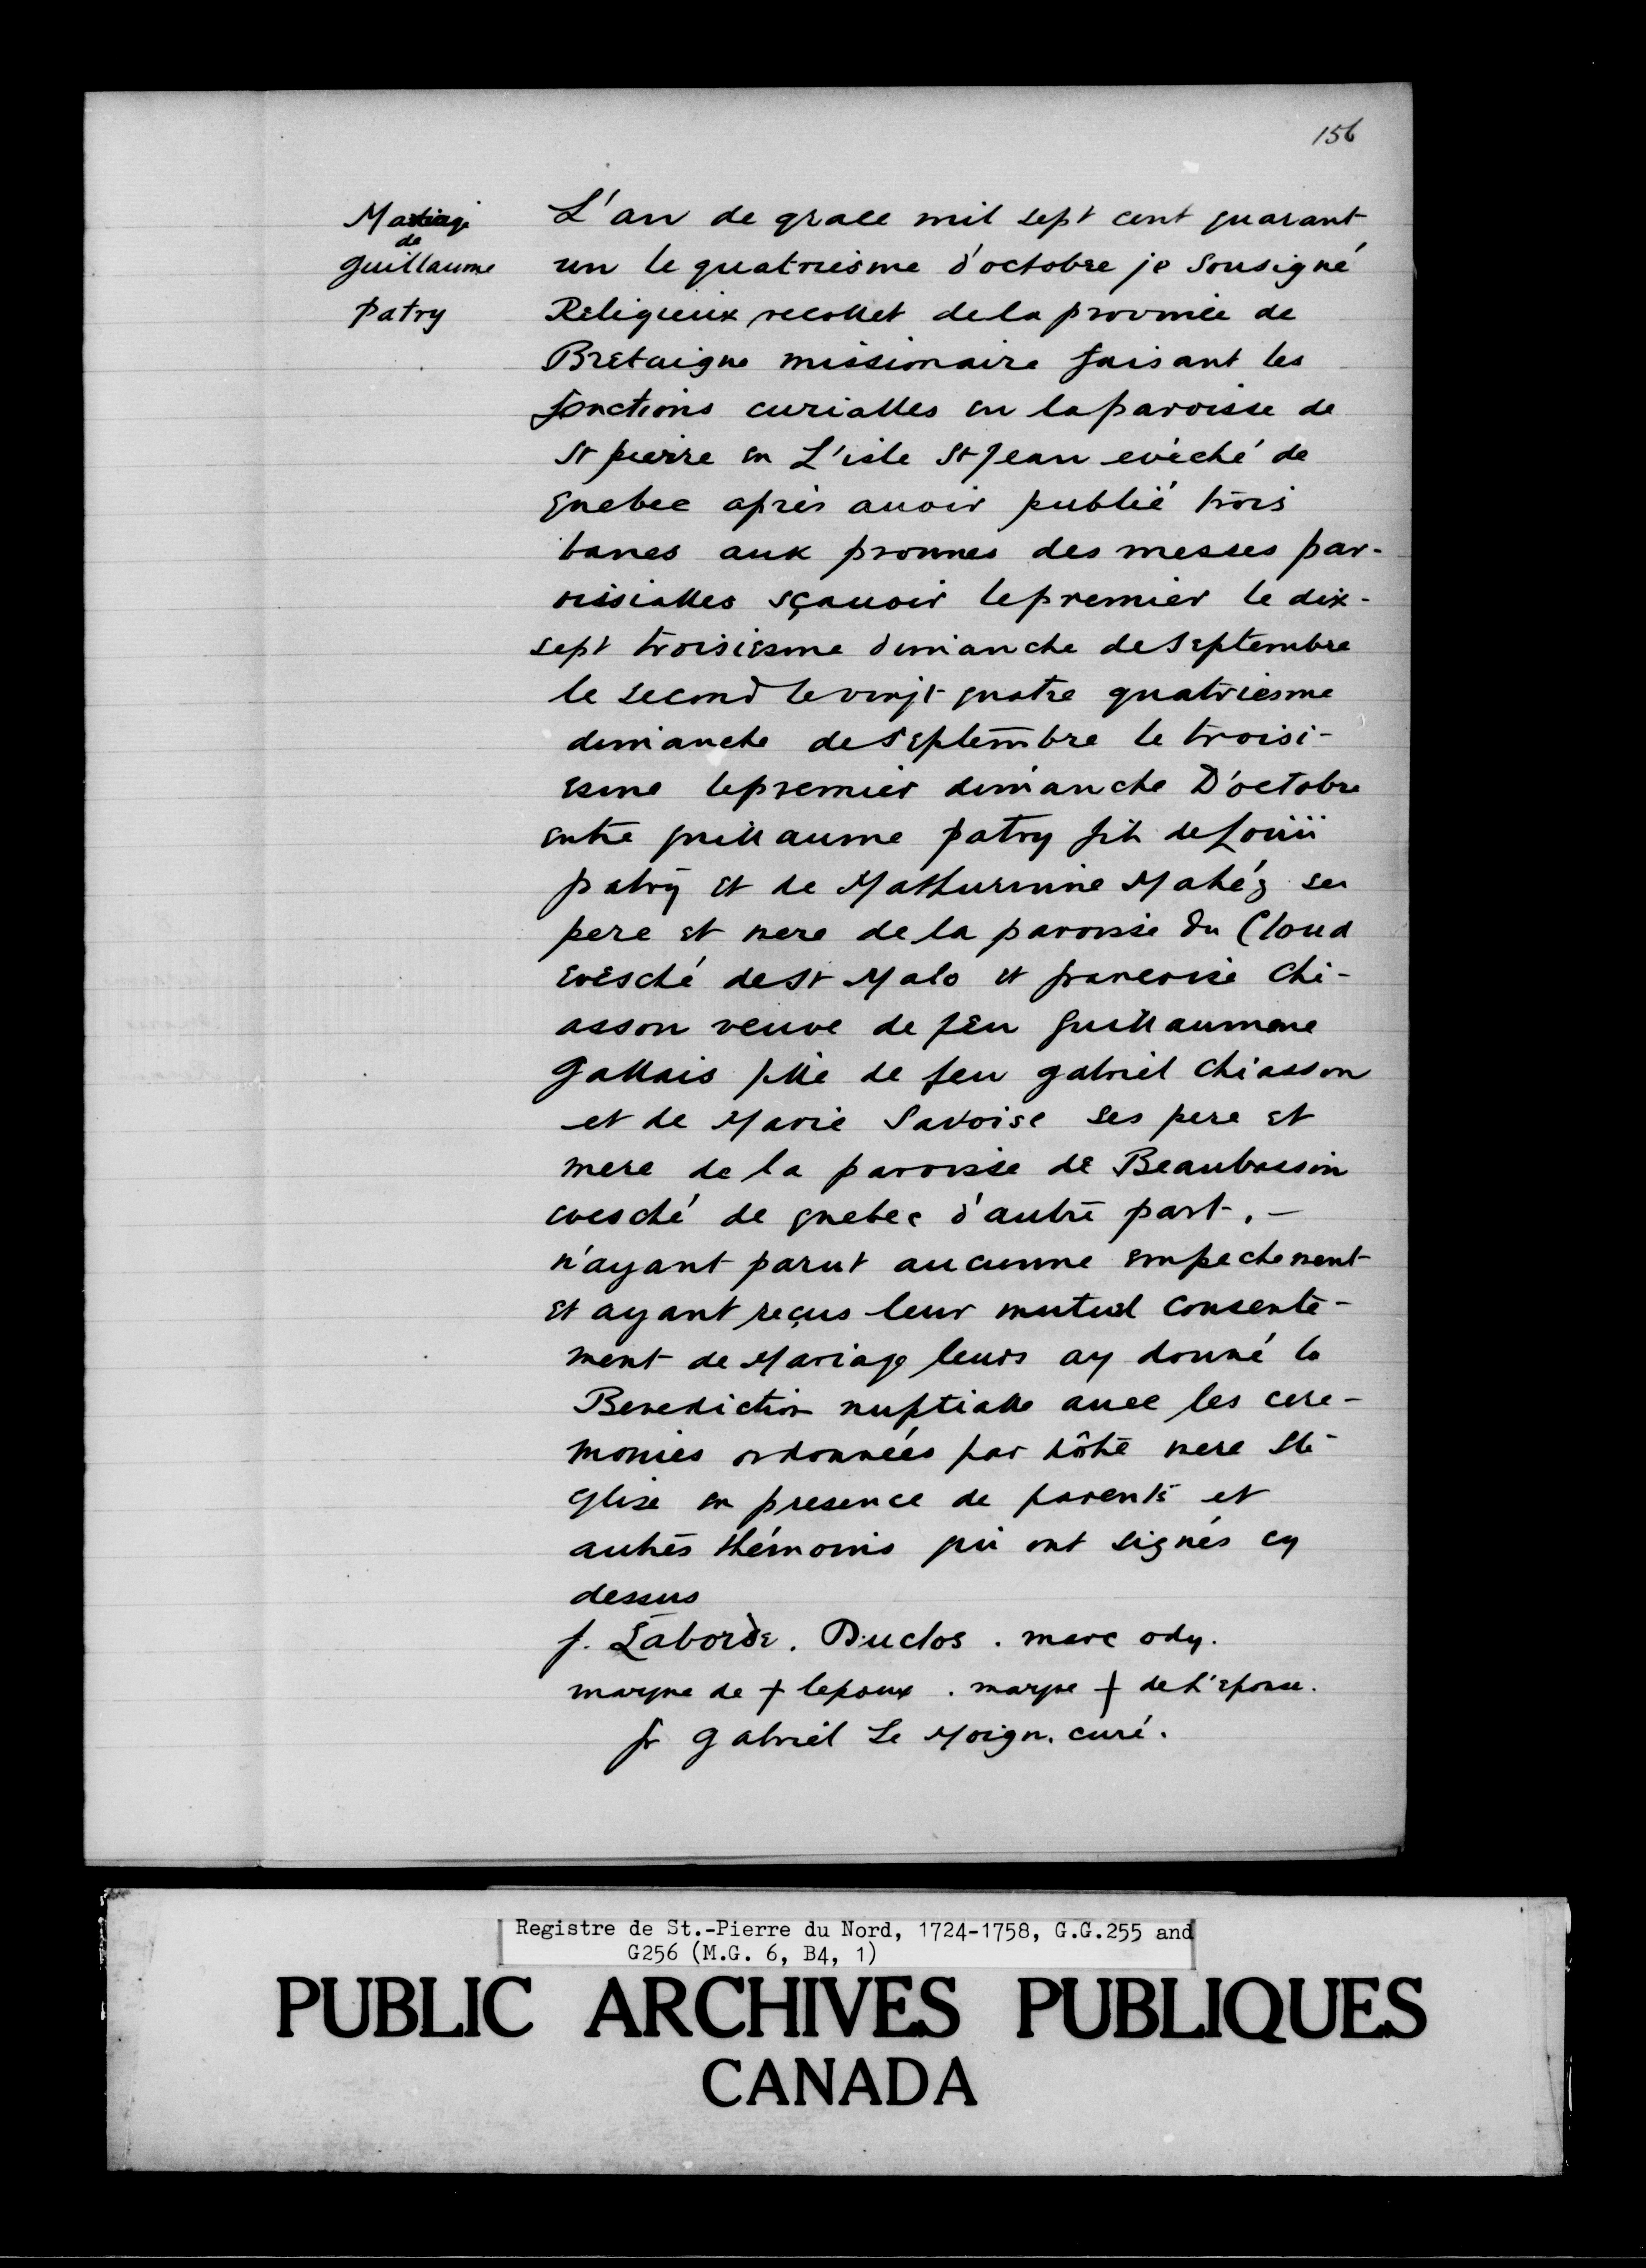 156
Mariage
de
guillaume
patry
L'an de grace mil sept cent quarant
un le quatriesme d'octobre je sousigné
Religieux recollet de la province de
Bretaigne missionaire faisant les
fonctions curialles en la paroisse de
St pierre en L'isle St Jean evêché de
quebec après auoir publié trois
banes aux pronnes des messes par-
oissialles sçauoir le premier le dix-
sept troisiesme dimanche de septembre
le second le vingt quatre quatriesme
dimanche de septembre le troisi-
esme le premier dimanche D'octobre
entre guillaume patry fils de Louis
patry et de Mathurinne Mahéz ses
pere et mere de la paroisse du Cloud
evesché de St Malo et francoise Chi-
asson veuve de feu guillaumme
gallais fille de feu gabriel chiasson
et de Marie Savoise ses pere et
mere de la paroisse de Beaubassin
evesché de quebec d'autre part. -
n'ayant parut aucunne empechement
et ayant reçus leur mutuel consente-
ment de Mariage leurs ay donné la
Benediction nuptialle auec les cere-
monies ordonnées par nôtre mere Ste
glise en presence de parents et
autres thémoins qui ont signés cy
dessus
f. Laborde. Duclos. marc ody.
marque de + lepoux. marque + de l'epouse.
fr gabriel Le Moign. curé.
Registre de St.-Pierre du Nord, 1724-1758, G.G.255 and
G256 (M.G. 6, B4, 1)
PUBLIC ARCHIVES PUBLIQUES
CANADA